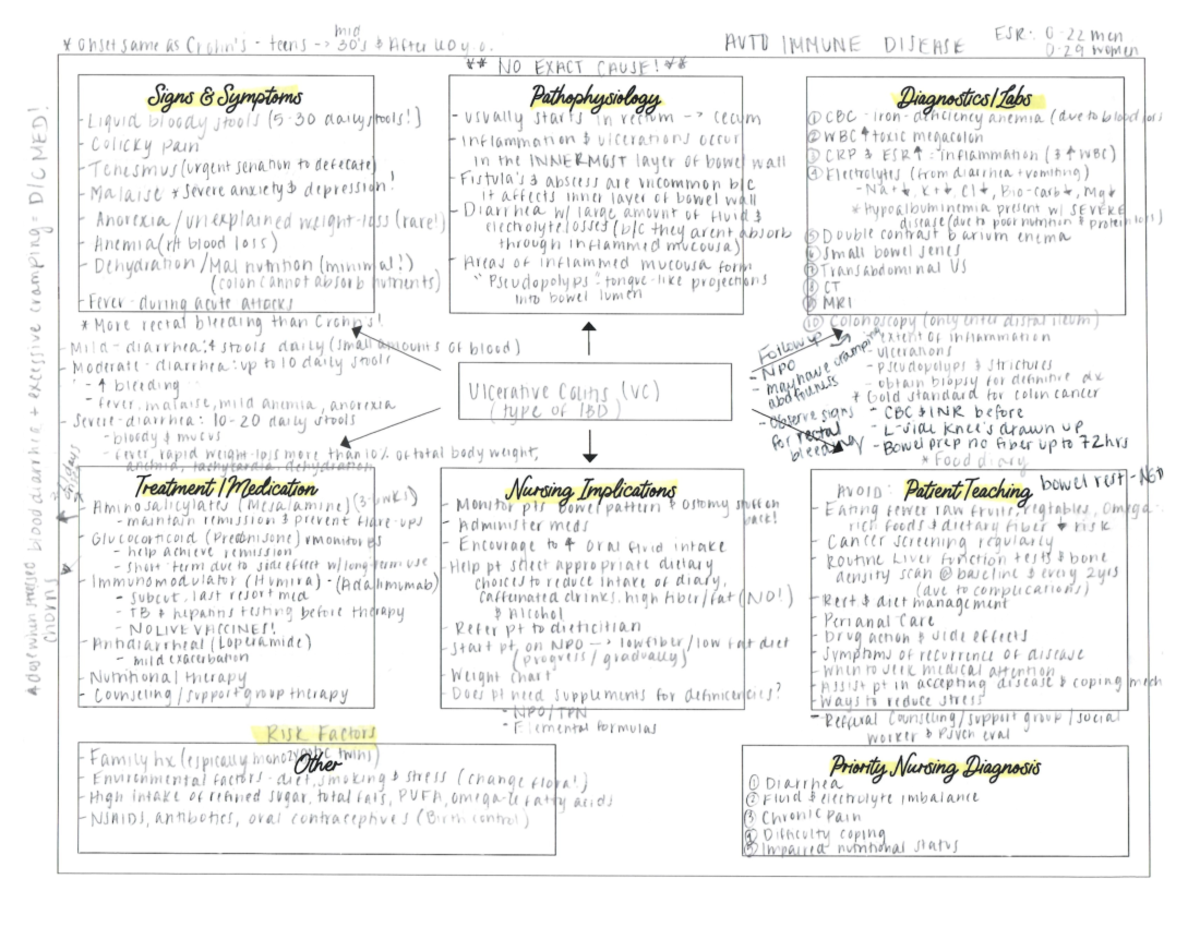 * Onset same as Crohn's - teens -> mid 30's & After 60 y.o.
AUTO IMMUNE DISEASE
ESR: 0-22 men
0-29 women
** NO EXACT CAUSE! **
Signs & Symptoms
- Liquid bloody stools (5-30 daily stools!)
- Colicky pain
- Tenesmus (urgent senation to defecate)
- Malaise * severe anxiety & depression!
- Anorexia / unexplained weight-loss (rare!)
- Anemia (r/t blood loss)
- Dehydration / Mal nutrition (minimal!)
(colon cannot absorb nutrients)
- Fever - during acute attacks
* More rectal bleeding than Crohn's!
- Mild - diarrhea: 4 stools daily (small amounts of blood)
- Moderate - diarrhea: up to 10 daily stools
- ↑ bleeding
- fever, malaise, mild anemia, anorexia
- Severe - diarrhea: 10-20 daily stools
- bloody & mucus
- fever, rapid weight-loss more than 10% of total body weight,
anemia, tachycardia, dehydration
Pathophysiology
- usually starts in rectum --> cecum
- Inflammation & ulcerations occur
in the INNERMOST layer of bowel wall
- Fistula's & abscess are uncommon b/c
it affects inner layer of bowel wall
- Diarrhea w/ large amount of fluid &
electrolyte losses (b/c they arent absorb
through inflammed mucousa)
- Areas of inflammed mucousa form
"Pseudopolyps": tongue-like projections
into bowel lumen
Diagnostics/Labs
① CBC - iron-deficiency anemia (due to blood loss
② WBC ↑ toxic megacolon
③ CRP & ESR ↑: inflammation (& ↑ WBC)
④ Electrolytes (from diarrhea + vomiting)
- Na+↓, K+↓, Cl↓, Bio-carb↓, Mg↓
* Hypoalbuminemia present w/ SEVERE
disease (due to poor nutrition & protein loss)
⑤ Double contrast barium enema
⑥ Small bowel series
⑦ Transabdominal US
⑧ CT
⑨ MRI
⑩ Colonoscopy (only enter distal ileum)
- extent of inflammation
- ulcerations
- pseudopolyps & strictures
- obtain biopsy for definitive dx
* Gold standard for colon cancer
- CBC & INR before
- L-side knee's drawn up
- Bowel prep no fiber up to 72hrs
* Food diary
Follow up
- NPO
- may have cramping
abd fullness
- Observe signs
for rectal
bleeding
Ulcerative Colitis (UC)
(type of IBD)
↑ dose when stressed blood diarrhea, + excessive cramping = D/C MED!
(norm)
Treatment / Medication
- Aminosalicylates (Mesalamine) (3-6 wks)
- maintain remission & prevent flare-ups
- Glucocorticoid (Prednisone)
- help achieve remission
- short term due to side effect w/ long-term use
- Immunomodulator (Humira) - (Adalimumab)
- subcut, last resort med
- TB & hepatitis testing before therapy
- NO LIVE VACCINES!
- Antidiarrheal (Loperamide)
- mild exacerbation
- Nutritional therapy
- Counseling / support group therapy
Nursing Implications
- Monitor pts bowel pattern & ostomy stuff on
back!
- Administer meds
- Encourage to ↑ oral fluid intake
- Help pt select appropriate dietary
choices to reduce intake of diary,
caffeinated drinks, high fiber/fat (NO!)
& Alcohol
- Refer pt to dieticitian
- Start pt on NPO --> low fiber / low fat diet
(progress / gradually)
- Weight chart
- Does pt need supplements for deficiencies?
- NPO / TPN
- Elemental formulas
Patient Teaching
AVOID:
bowel rest - NGD
- Eating fewer raw fruits, vegtables, Omega-
rich foods & dietary fiber ↓ risk
- Cancer screening regularly
- Routine Liver function tests & bone
density scan @ baseline & every 2yrs
(due to complications)
- Rest & diet management
- Perianal Care
- Drug action & side effects
- Symptoms of recurrence of disease
- When to seek medical attention
- Assist pt in accepting disease & coping mech
- Ways to reduce stress
- Refferal Counseling / support group / social
worker & psych eval
Risk Factors
Other
- Family hx (espically monozygotic twins)
- Environmental factors - diet, smoking & stress (change flora!)
- High intake of refined sugar, total fats, PUFA, omega-6 fatty acids
- NSAIDS, antibotics, oral contraceptives (Birth control)
Priority Nursing Diagnosis
① Diarrhea
② Fluid & electrolyte imbalance
③ Chronic Pain
④ Difficulty coping
⑤ Impaired nutritional status